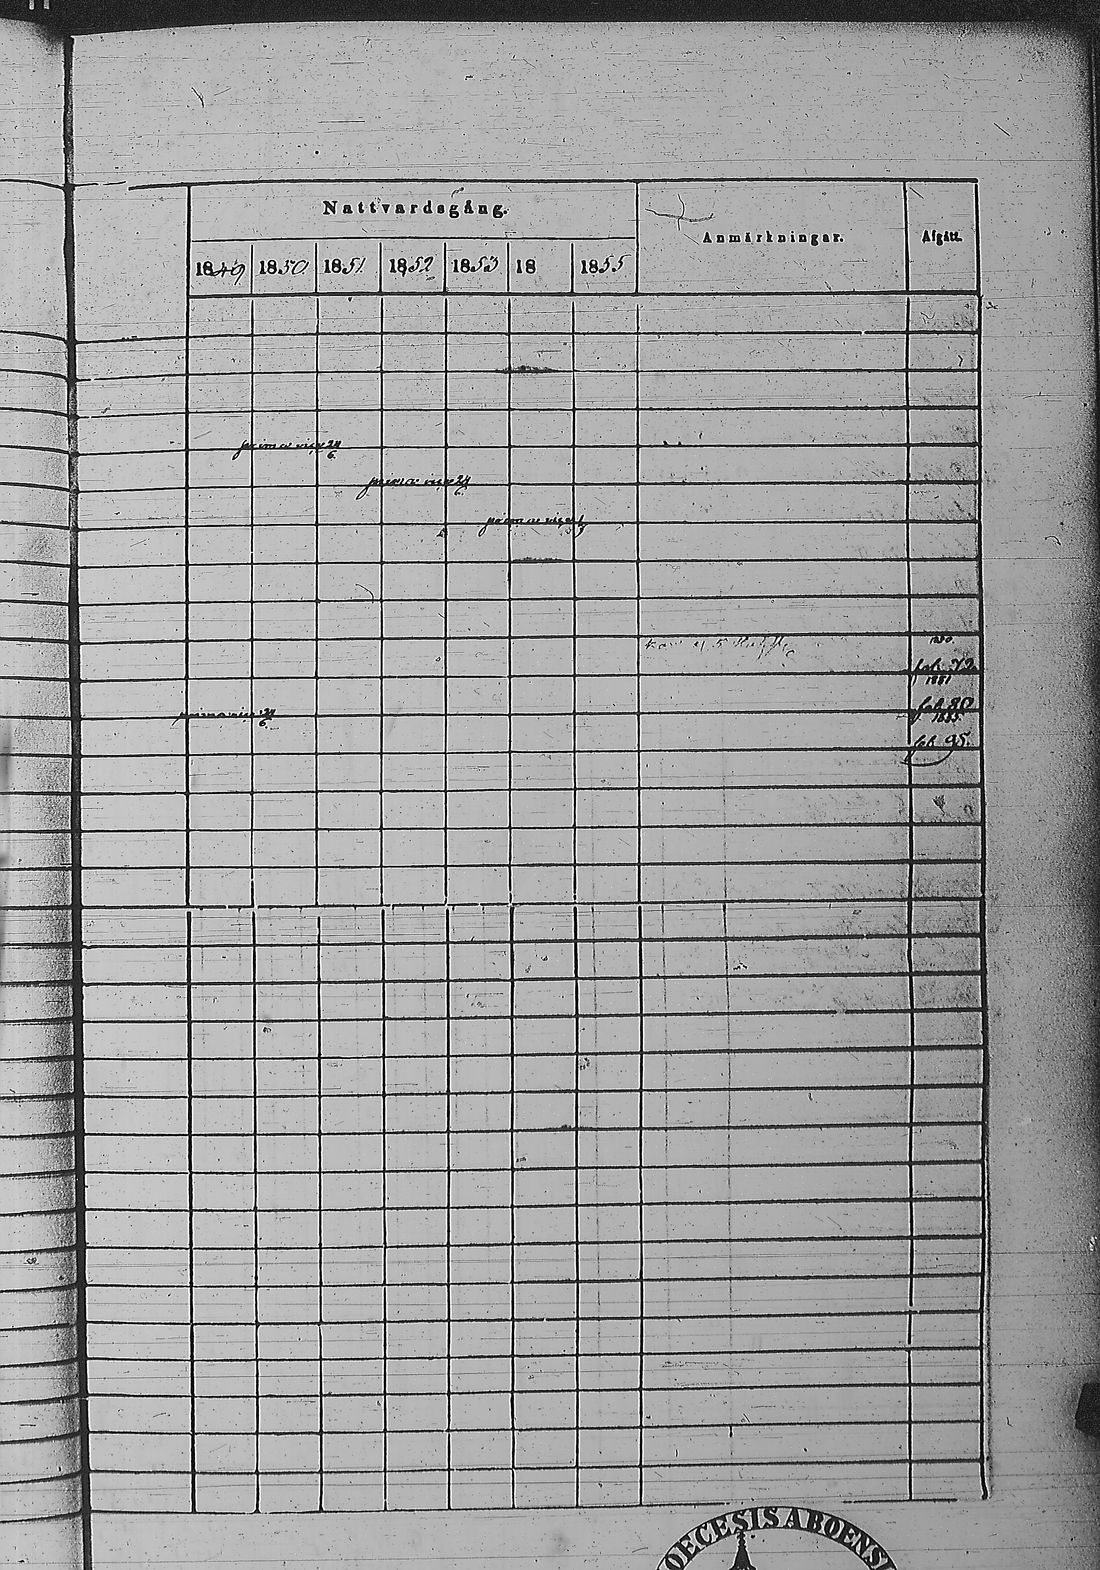 Nattvardsgång.
Anmärkningar.
Afgått.
1849 1850 1851 1852 1853 18 1855
prima vice 24/6
prima vice 24/6
prima vice
1850.
fol. 72
1851
prima vice 24/6
fol. 80
1855.
fol. 95.
OECESIS ABOENSI